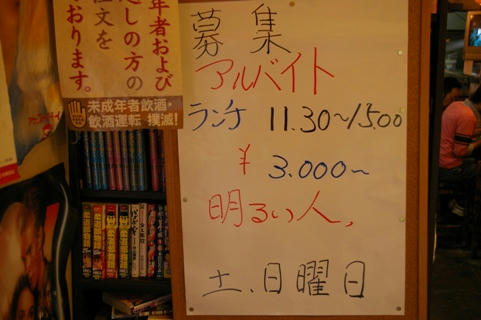 年者および
しの方の
注文を
おります。
未成年者飲酒・
飲酒運転 撲滅!
募集
アルバイト
ランチ 11.30~15.00
¥3.000~
明るい人、
土、日曜日